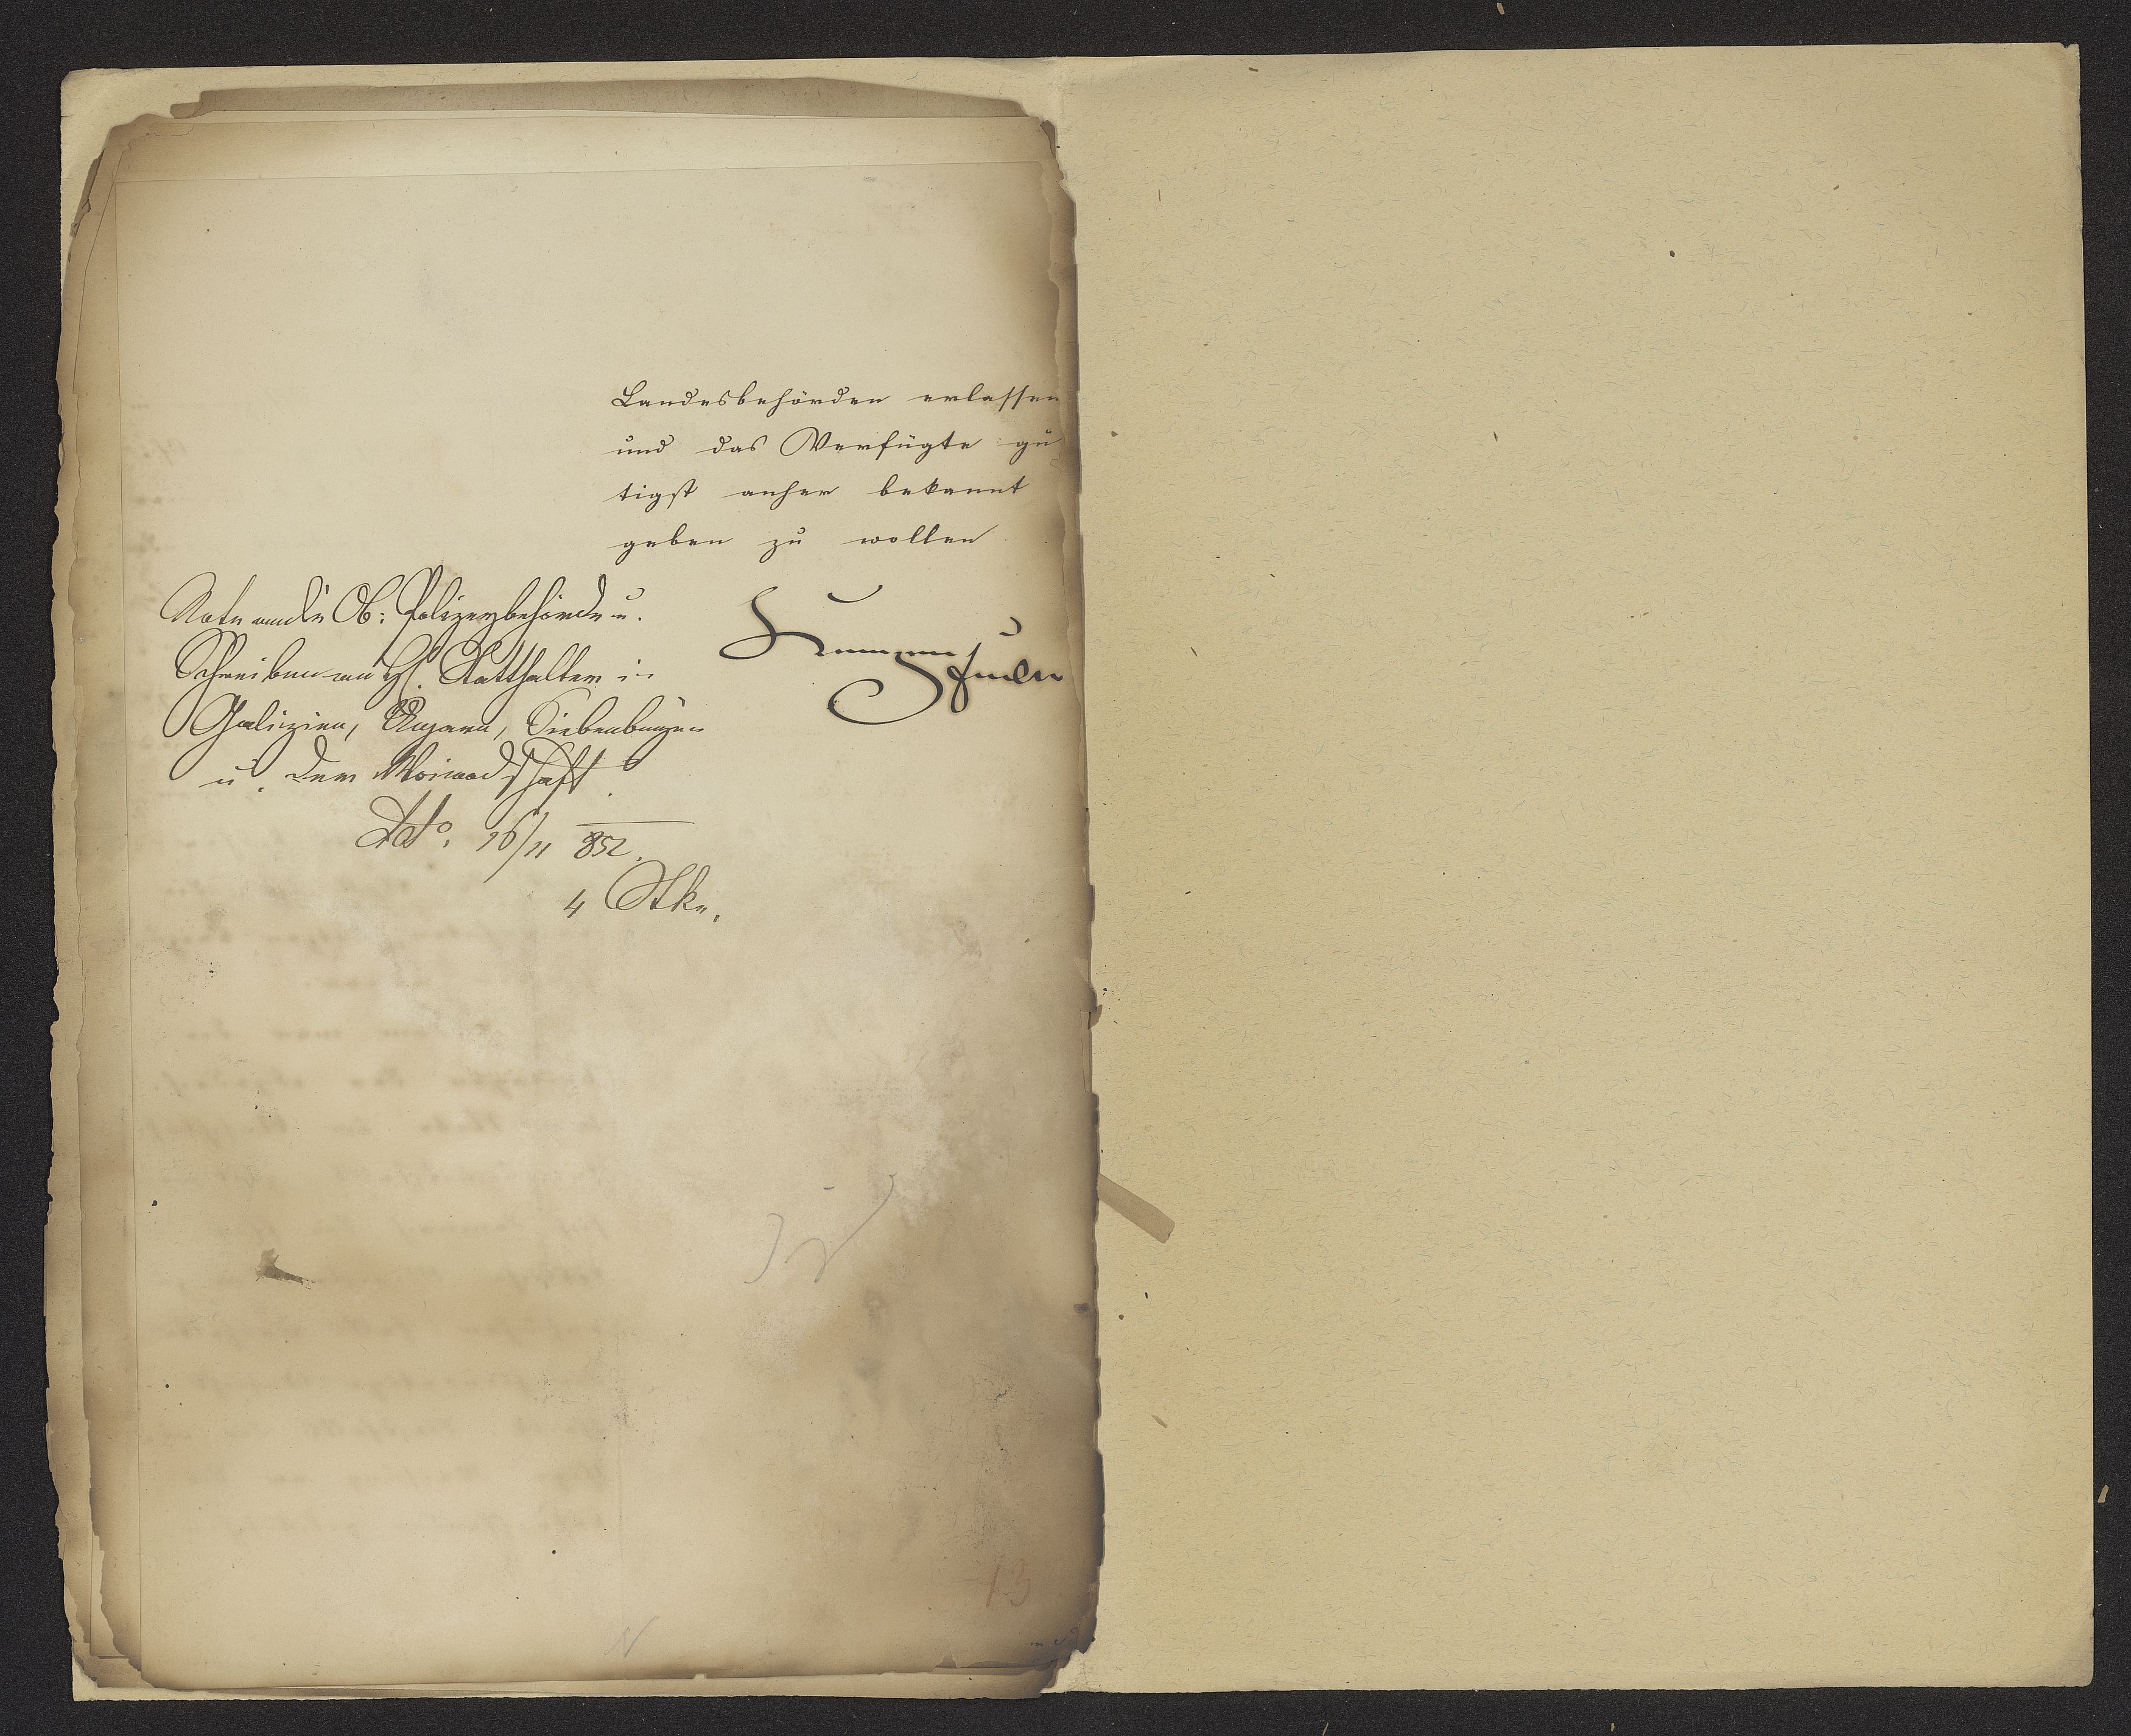 Landesbehörden erlassen
und das Verfügte gü
tigst anher bekannt
geben zu wollen
Note an die Ob: Polizeybehörde u.
Schreiben an H. Statthalter in
Galizien, Ungarn, Siebenbürgen
u. der Woiwodschaft
Dto. 16/11 852.
4 Stke.
13